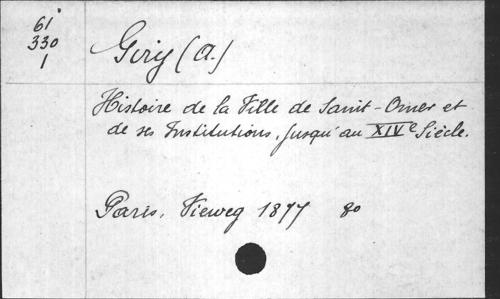 61
330
1
Giry (A.)
Histoire de la Ville de Saint-Omer et
de ses Institutions, jusqu'au XIVe Siècle.
Paris, Vieweg 1877 80